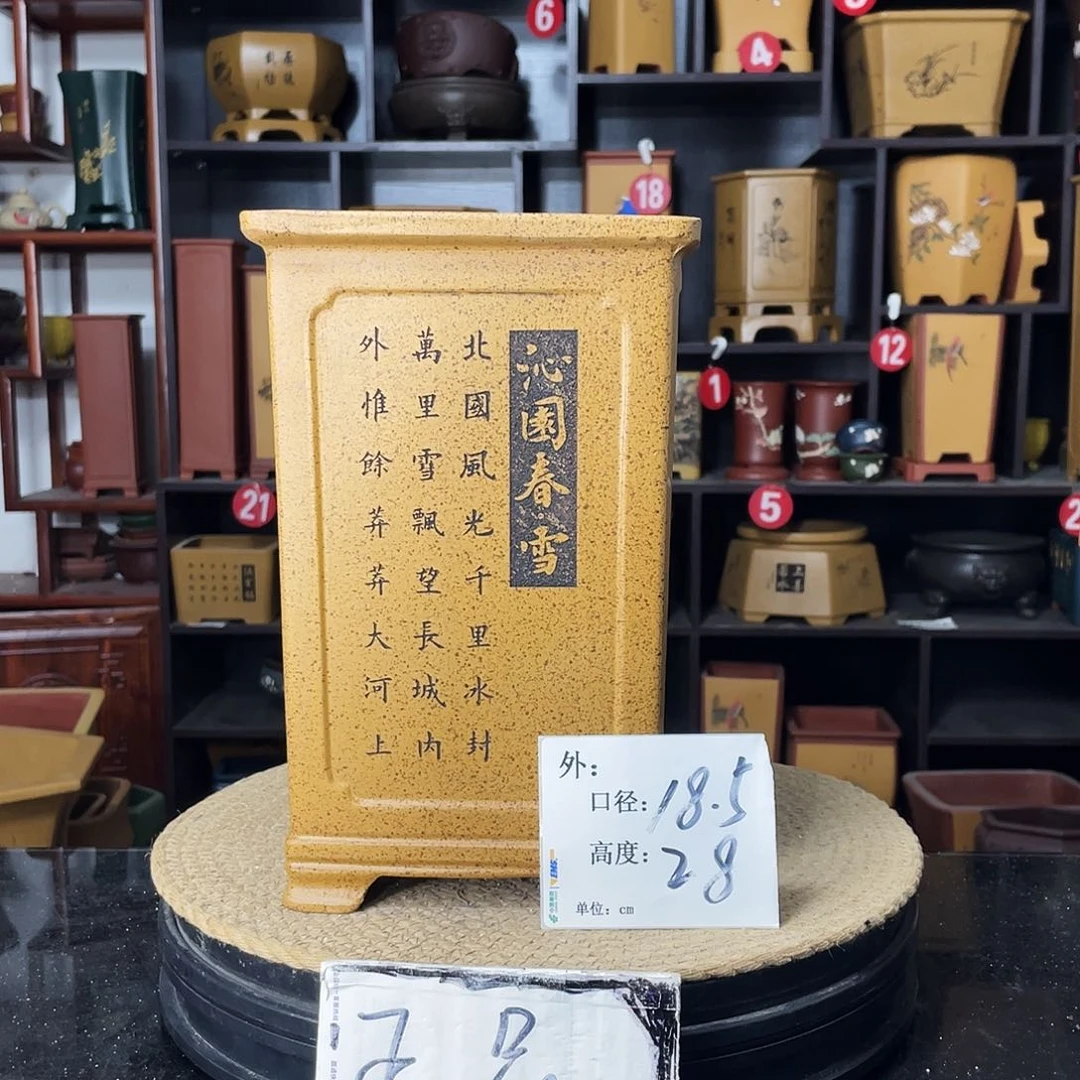 沁園春·雪
北國風光千里冰封
萬里雪飄望長城內
外惟餘莽莽大河上
外：
口径：18.5
高度：28
单位：cm
6
4
18
12
1
21
5
2